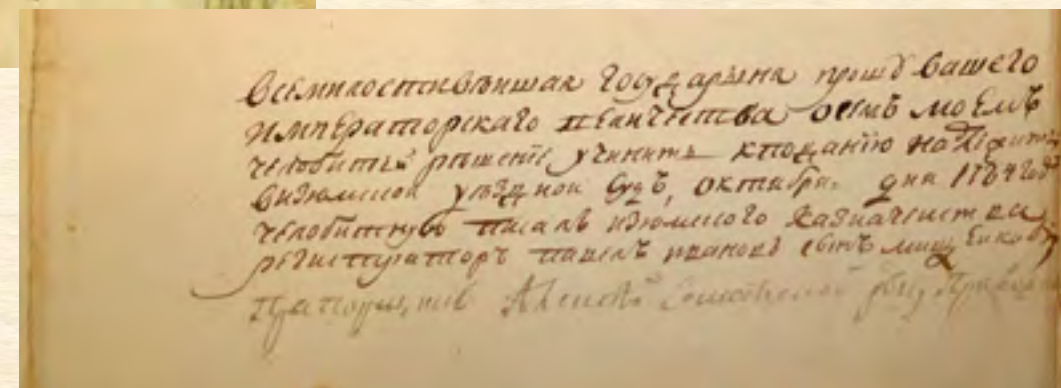 всемилостивѣйшая Государыня прошу вашего
императорскаго величества осемъ моемъ
челобитьѣ рѣшеніе учинить кподанію надлежитъ
визюмской уѣздной судъ, октября дня 1784 годъ
челобитную писалъ изюмского казначейства
регистраторъ павелъ ивановъ сынъ мищенковъ
Прапорщикъ Алексѣй руку приложилъ